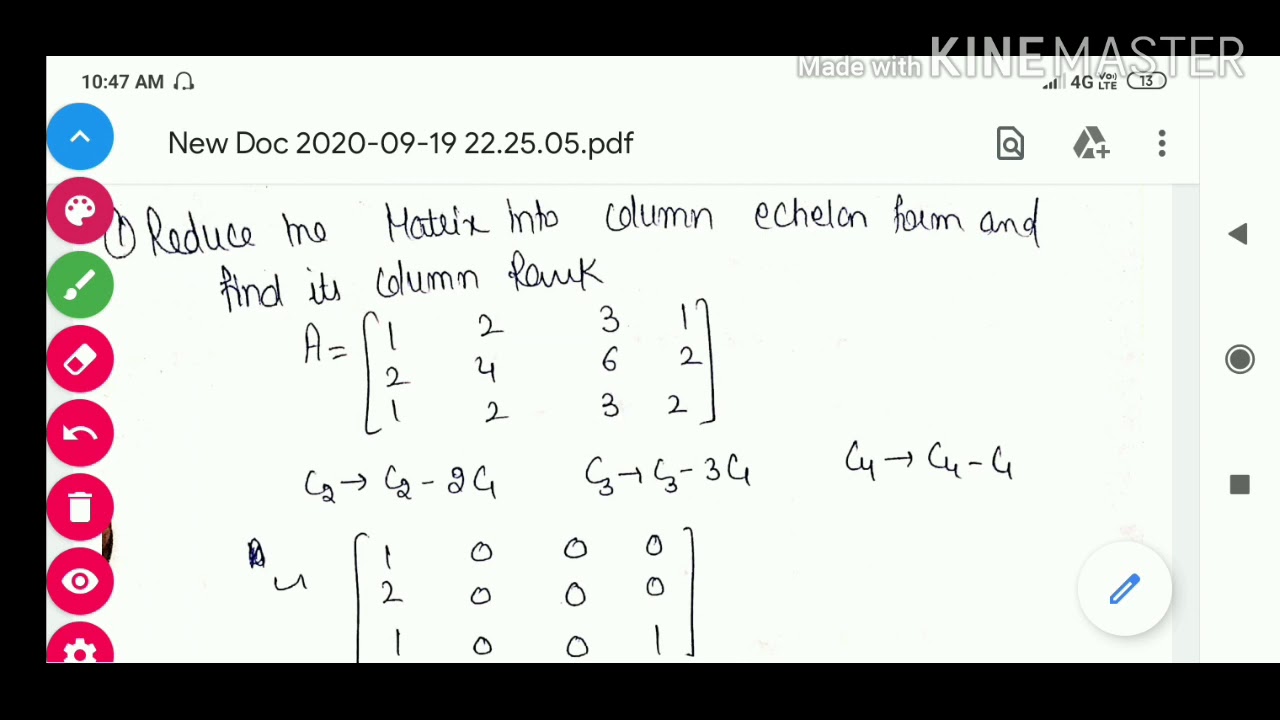 Made with KINEMASTER
10:47 AM 4G Vo) LTE 13
New Doc 2020-09-19 22.25.05.pdf
① Reduce the Matrix into column echelon form and
find its column Rank
A = [ 1 2 3 1
2 4 6 2
1 2 3 2 ]
C₂ → C₂ - 2C₁ C₃ → C₃ - 3C₁ C₄ → C₄ - C₁
~ [ 1 0 0 0
2 0 0 0
1 0 0 1 ]